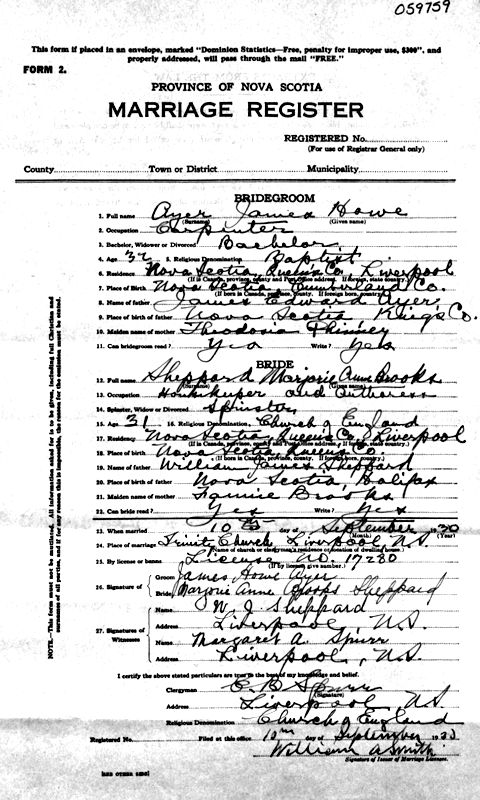 059759
This form if placed in an envelope, marked "Dominion Statistics—Free, penalty for improper use, $300", and
properly addressed, will pass through the mail "FREE."
FORM 2.
PROVINCE OF NOVA SCOTIA
MARRIAGE REGISTER
REGISTERED No.
(For use of Registrar General only)
County Town or District Municipality
BRIDEGROOM
1. Full name Ayer James Howe
(Surname) (Given names)
2. Occupation Carpenter
3. Bachelor, Widower or Divorced Bachelor
4. Age 32 5. Religious Denomination Baptist
6. Residence Nova Scotia Queen's Co. Liverpool
(If in Canada, province, county and Post Office address. If foreign, state country.)
7. Place of Birth Nova Scotia, Cumberland Co.
(If born in Canada, province, county. If foreign born, country.)
8. Name of father James Edward Ayer
9. Place of birth of father Nova Scotia Kings Co.
10. Maiden name of mother Theodosia Phinney
11. Can bridegroom read? Yes Write? Yes
BRIDE
12. Full name Sheppard Marjorie Anne Brooks
(Surname) (Given names)
13. Occupation Housekeeper and Authoress
14. Spinster, Widow or Divorced Spinster
15. Age 31 16. Religious Denomination Church of England
17. Residence Nova Scotia, Queens Co., Liverpool
(If in Canada, province, county and Post Office address. If foreign, state country.)
18. Place of Birth Nova Scotia, Queens Co.
(If born in Canada, province, county. If foreign born, country.)
19. Name of father William James Sheppard
20. Place of birth of father Nova Scotia, Halifax
21. Maiden name of mother Fannie Brooks
22. Can bride read? Yes Write? Yes
23. When married 10th day of September 1930
(Month) (Year)
24. Place of marriage Trinity Church, Liverpool N.S.
(Name of church or clergyman's residence or location of dwelling house.)
25. By license or banns License No. 17280
(If by license give number.)
26. Signature of Groom James Howe Ayer
Bride Marjorie Anne Brooks Sheppard
27. Signatures of Witnesses Name W. J. Sheppard
Address Liverpool, N.S.
Name Margaret A. Spurr
Address Liverpool, N.S.
I certify the above stated particulars are true to the best of my knowledge and belief.
Clergyman Spurr
(Signature)
Address Liverpool N.S.
Religious Denomination Church of England
Registered No. Filed at this office 10th day of September 1930
William A Smith
Signature of Issuer of Marriage Licenses.
[SEE OTHER SIDE]
NOTE—This form must not be mutilated. All information asked for is to be given, including full Christian and
surnames of all parties, and if for any reason this is impossible, the reason for the omission must be stated.